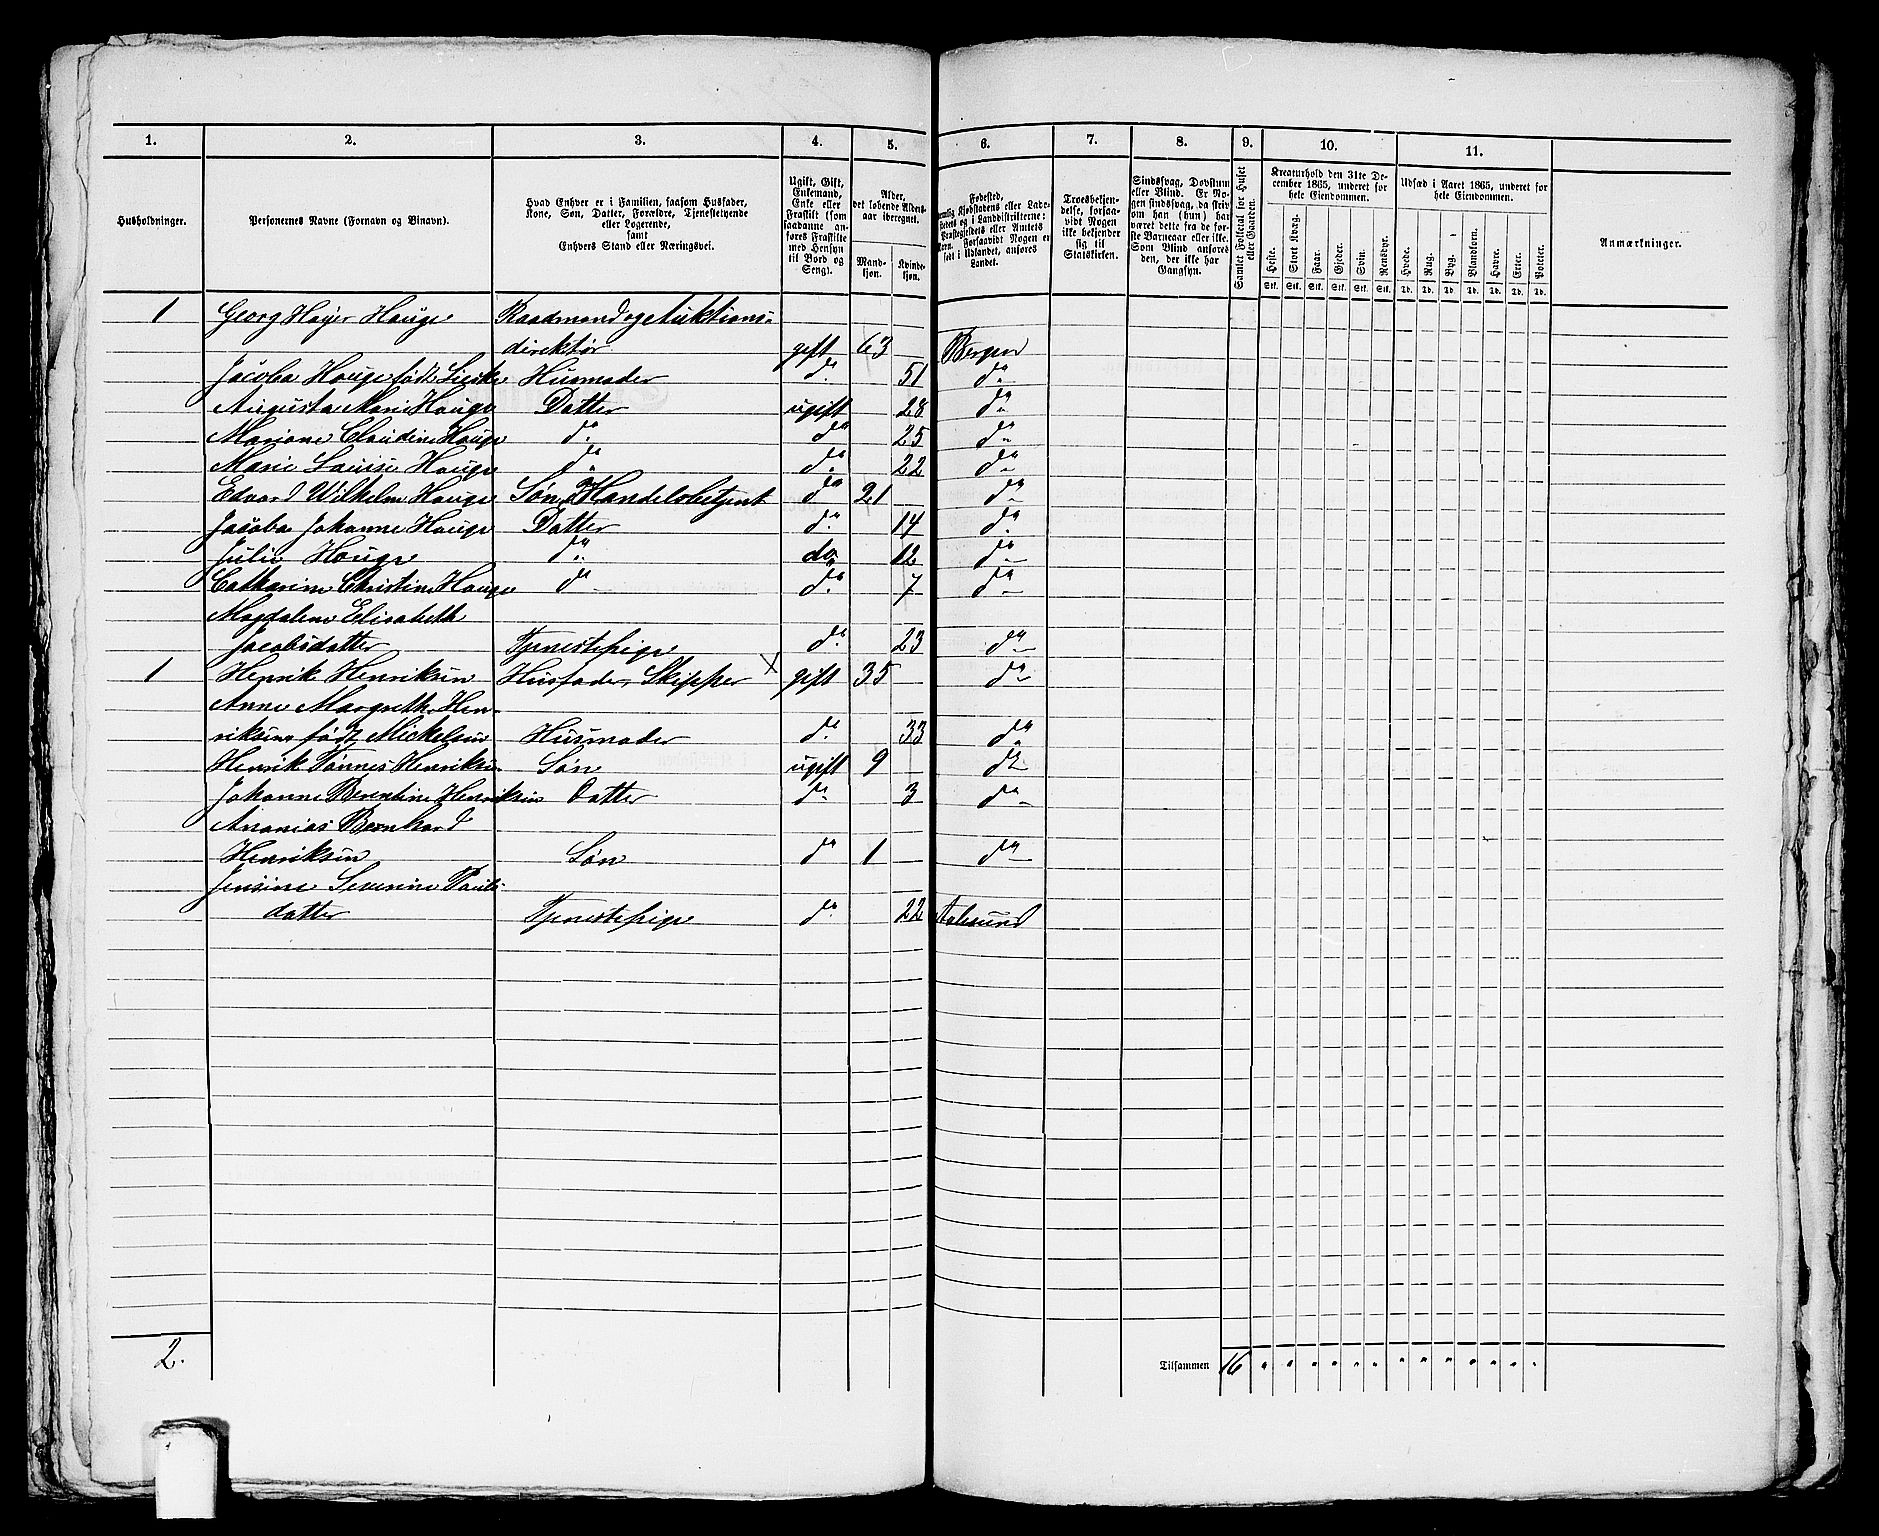 1. 2. 3. 4. 5. 6. 7. 8. 9. 10. 11.
Husholdninger.
Personernes Navne (Fornavn og Binavn).
Hvad Enhver er i Familien, saasom Husfader,
Kone, Søn, Datter, Forældre, Tjenestetyende
eller Logerende,
samt
Enhvers Stand eller Næringsvei.
Ugift, Gift,
Enkemand,
Enke eller
Fraskilt (som
saadanne an-
føres Fraskilte
med Hensyn
til Bord og
Seng).
Alder,
det løbende Alders-
aar iberegnet.
Mand-
kjøn.
Kvinde-
kjøn.
Fødested,
Kjøbstadens eller Lade-
stedets og i Landdistrikterne:
Præstegjeldets eller Amtets
Navn. Forsaavidt Nogen er
født i Udlandet, anføres
Landet.
Troesbekjen-
delse, forsaa-
vidt Nogen
ikke bekjender
sig til
Statskirken.
Sindssvag, Døvstum
eller Blind. Er No-
gen sindssvag, da skriv
om han (hun) har
været dette fra de før-
ste Barneaar eller ikke.
Som Blind anføres
den, der ikke har
Gangsyn.
Samlet Folketal for Huset
eller Gaarden.
Kreaturhold den 31te De-
cember 1865, underet for
hele Eiendommen.
Heste. Stort Kvæg. Faar. Gjeder. Svin. Rensdyr.
Stk. Stk. Stk. Stk. Stk. Stk.
Udsæd i Aaret 1865, underet for
hele Eiendommen.
Hvede. Rug. Byg. Blandkorn. Havre. Erter. Poteter.
Td. Td. Td. Td. Td. Td. Td.
Anmærkninger.
1 Georg Høyer Hauge Raadmand og Auktions-
direktør. gift 63 Bergen
Jacoba Hauge født do. 51 do
Husmoder
Augusta Marie Hauge Datter ugift 28 do
Mariane Claudine Hauge do do 25 do
Marie Louise Hauge do do. 22 do
Edvard Wilhelm Hauge Søn, Handelsbetjent do 21 do
Jacoba Johanne Hauge Datter do. 14 do
Julie Hauge do do 12 do
Catharine Christine Hauge do do. 7 do
Magdalene Elisabeth
Jacobsdatter Tjenestepige do. 23 do
1 Henrik Henriksen Husfader, Skipper X gift 35 do
Anne Margrethe Hen-
riksen født Mickelsen Husmoder do 33 do
Henrik Tønnes Henriksen Søn ugift 9 do
Johanne Berentine Henriksen Datter do 3 do
Ananias Bernhard
Henriksen Søn do 1 do
Jensine Severine Pauls-
datter Tjenestepige do. 22 Aalesund
2.
Tilsammen 16 " " " " " " " " " " " " "